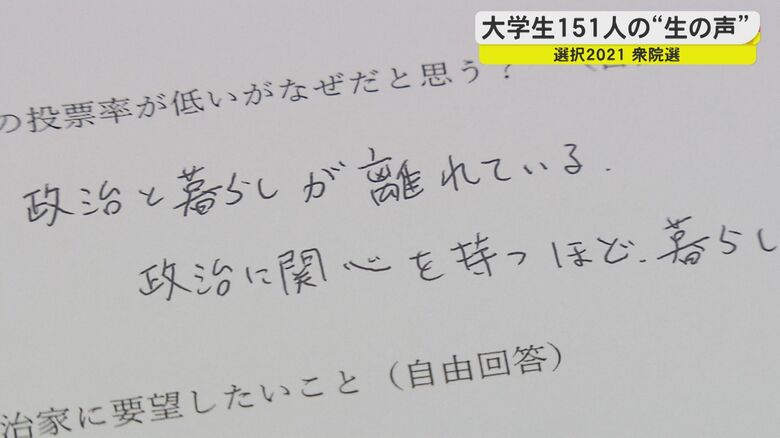 大学生151人の“生の声”
選択2021 衆院選
の投票率が低いがなぜだと思う？
政治と暮らしが離れている.
政治に関心を持つほど、暮らし
治家に要望したいこと（自由回答）